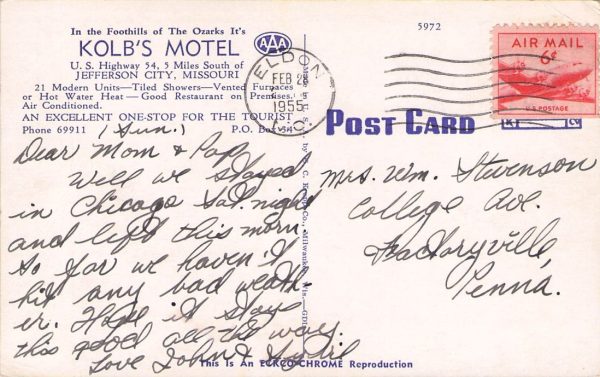 In the Foothills of The Ozarks It's
KOLB'S MOTEL
AAA
U. S. Highway 54, 5 Miles South of
JEFFERSON CITY, MISSOURI
21 Modern Units—Tiled Showers—Vented Furnaces
or Hot Water Heat — Good Restaurant on Premises.
Air Conditioned.
AN EXCELLENT ONE-STOP FOR THE TOURIST
Phone 69911
P.O. Box
5972
ELDON
FEB 28
1955
AIR MAIL
6¢
U.S. POSTAGE
POST CARD
(Sun.)
Dear Mom & Pop,
Well we stayed
in Chicago Sat. night
and left this morn.
So far we haven't
hit any bad weath-
er. Hope it stays
this good all the way.
Love John &
Mrs. Wm. Stevenson
College Ave.
Factoryville,
Penna.
Co., Milwaukee, Wis.
This Is An EKCO-CHROME Reproduction